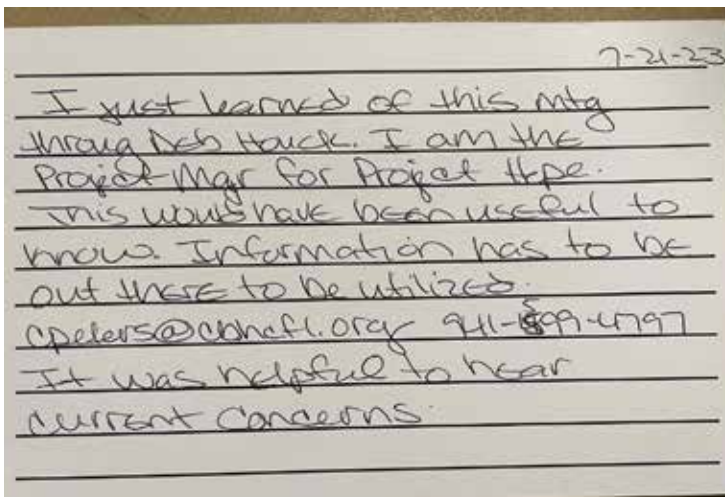 7-21-23
I just learned of this mtg
throug Deb Houck. I am the
Project Mgr for Project Hope.
This would have been useful to
know. Information has to be
out there to be utilized.
cpeters@cbhcfl.org 941-599-4797
It was helpful to hear
current concerns.